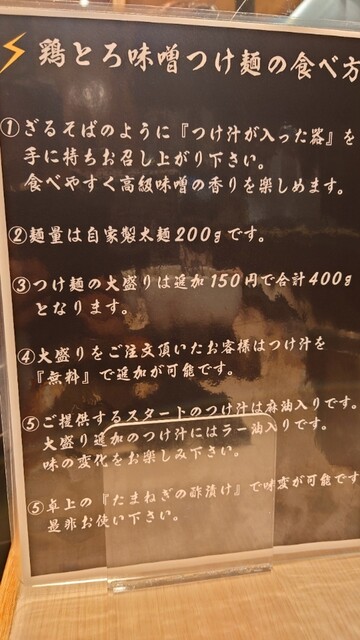 鶏とろ味噌つけ麺の食べ方
①ざるそばのように『つけ汁が入った器』を
手に持ちお召し上がり下さい。
食べやすく高級味噌の香りを楽しめます。
②麺量は自家製太麺200gです。
③つけ麺の大盛りは追加150円で合計400g
となります。
④大盛りをご注文頂いたお客様はつけ汁を
『無料』で追加が可能です。
⑤ご提供するスタートのつけ汁は麻油入りです。
大盛り追加のつけ汁にはラー油入りです。
味の変化をお楽しみ下さい。
⑤卓上の『たまねぎの酢漬け』で味変が可能です
是非お使い下さい。